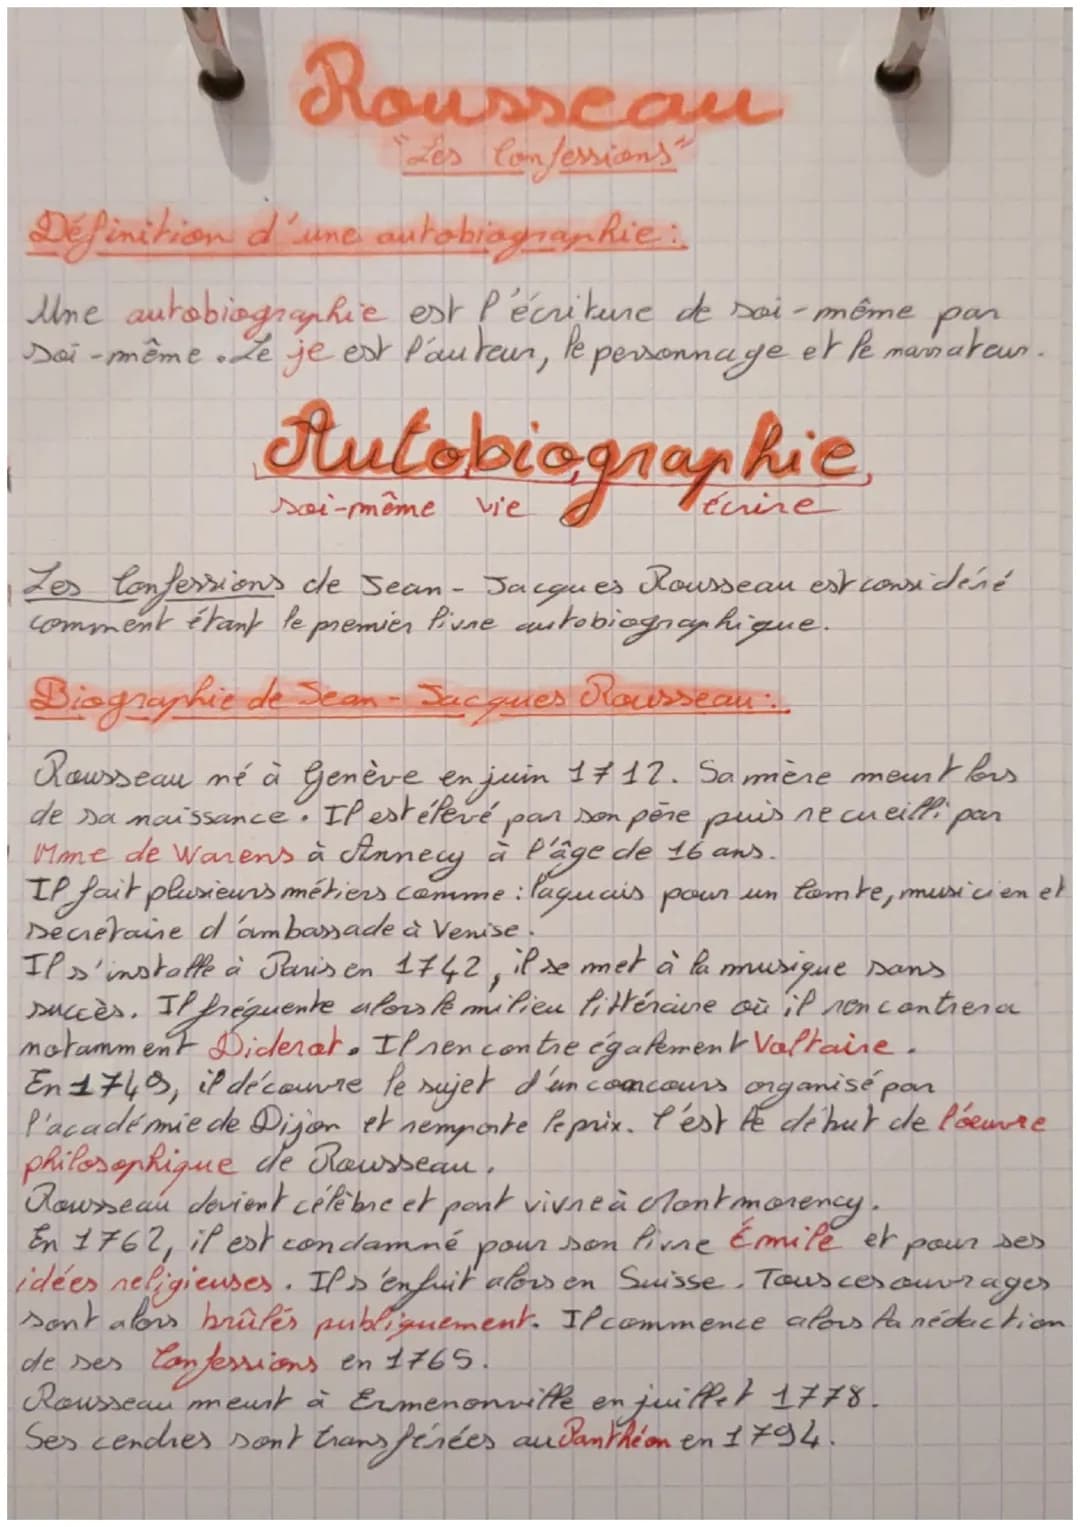 Rousseau
"Les Confessions"
Définition d'une autobiographie :
Une autobiographie est l'écriture de soi-même par
soi-même. Le je est l'auteur, le personnage et le narrateur.
Autobiographie
soi-même vie écrire
Les Confessions de Jean-Jacques Rousseau est considéré
comment étant le premier livre autobiographique.
Biographie de Jean-Jacques Rousseau :
Rousseau né à Genève en juin 1712. Sa mère meurt lors
de sa naissance. Il est élevé par son père puis recueilli par
Mme de Warens à Annecy à l'âge de 16 ans.
Il fait plusieurs métiers comme : laquais pour un Comte, musicien et
secrétaire d'ambassade à Venise.
Il s'installe à Paris en 1742, il se met à la musique sans
succès. Il fréquente alors le milieu littéraire où il rencontrera
notamment Diderot. Il rencontre également Voltaire.
En 1749, il découvre le sujet d'un concours organisé par
l'académie de Dijon et remporte le prix. C'est le début de l'oeuvre
philosophique de Rousseau.
Rousseau devient célèbre et part vivre à Montmorency.
En 1762, il est condamné pour son livre Émile et pour ses
idées religieuses. Il s'enfuit alors en Suisse. Tous ces ouvrages
sont alors brûlés publiquement. Il commence alors la rédaction
de ses Confessions en 1765.
Rousseau meurt à Ermenonville en juillet 1778.
Ses cendres sont transférées au Panthéon en 1794.